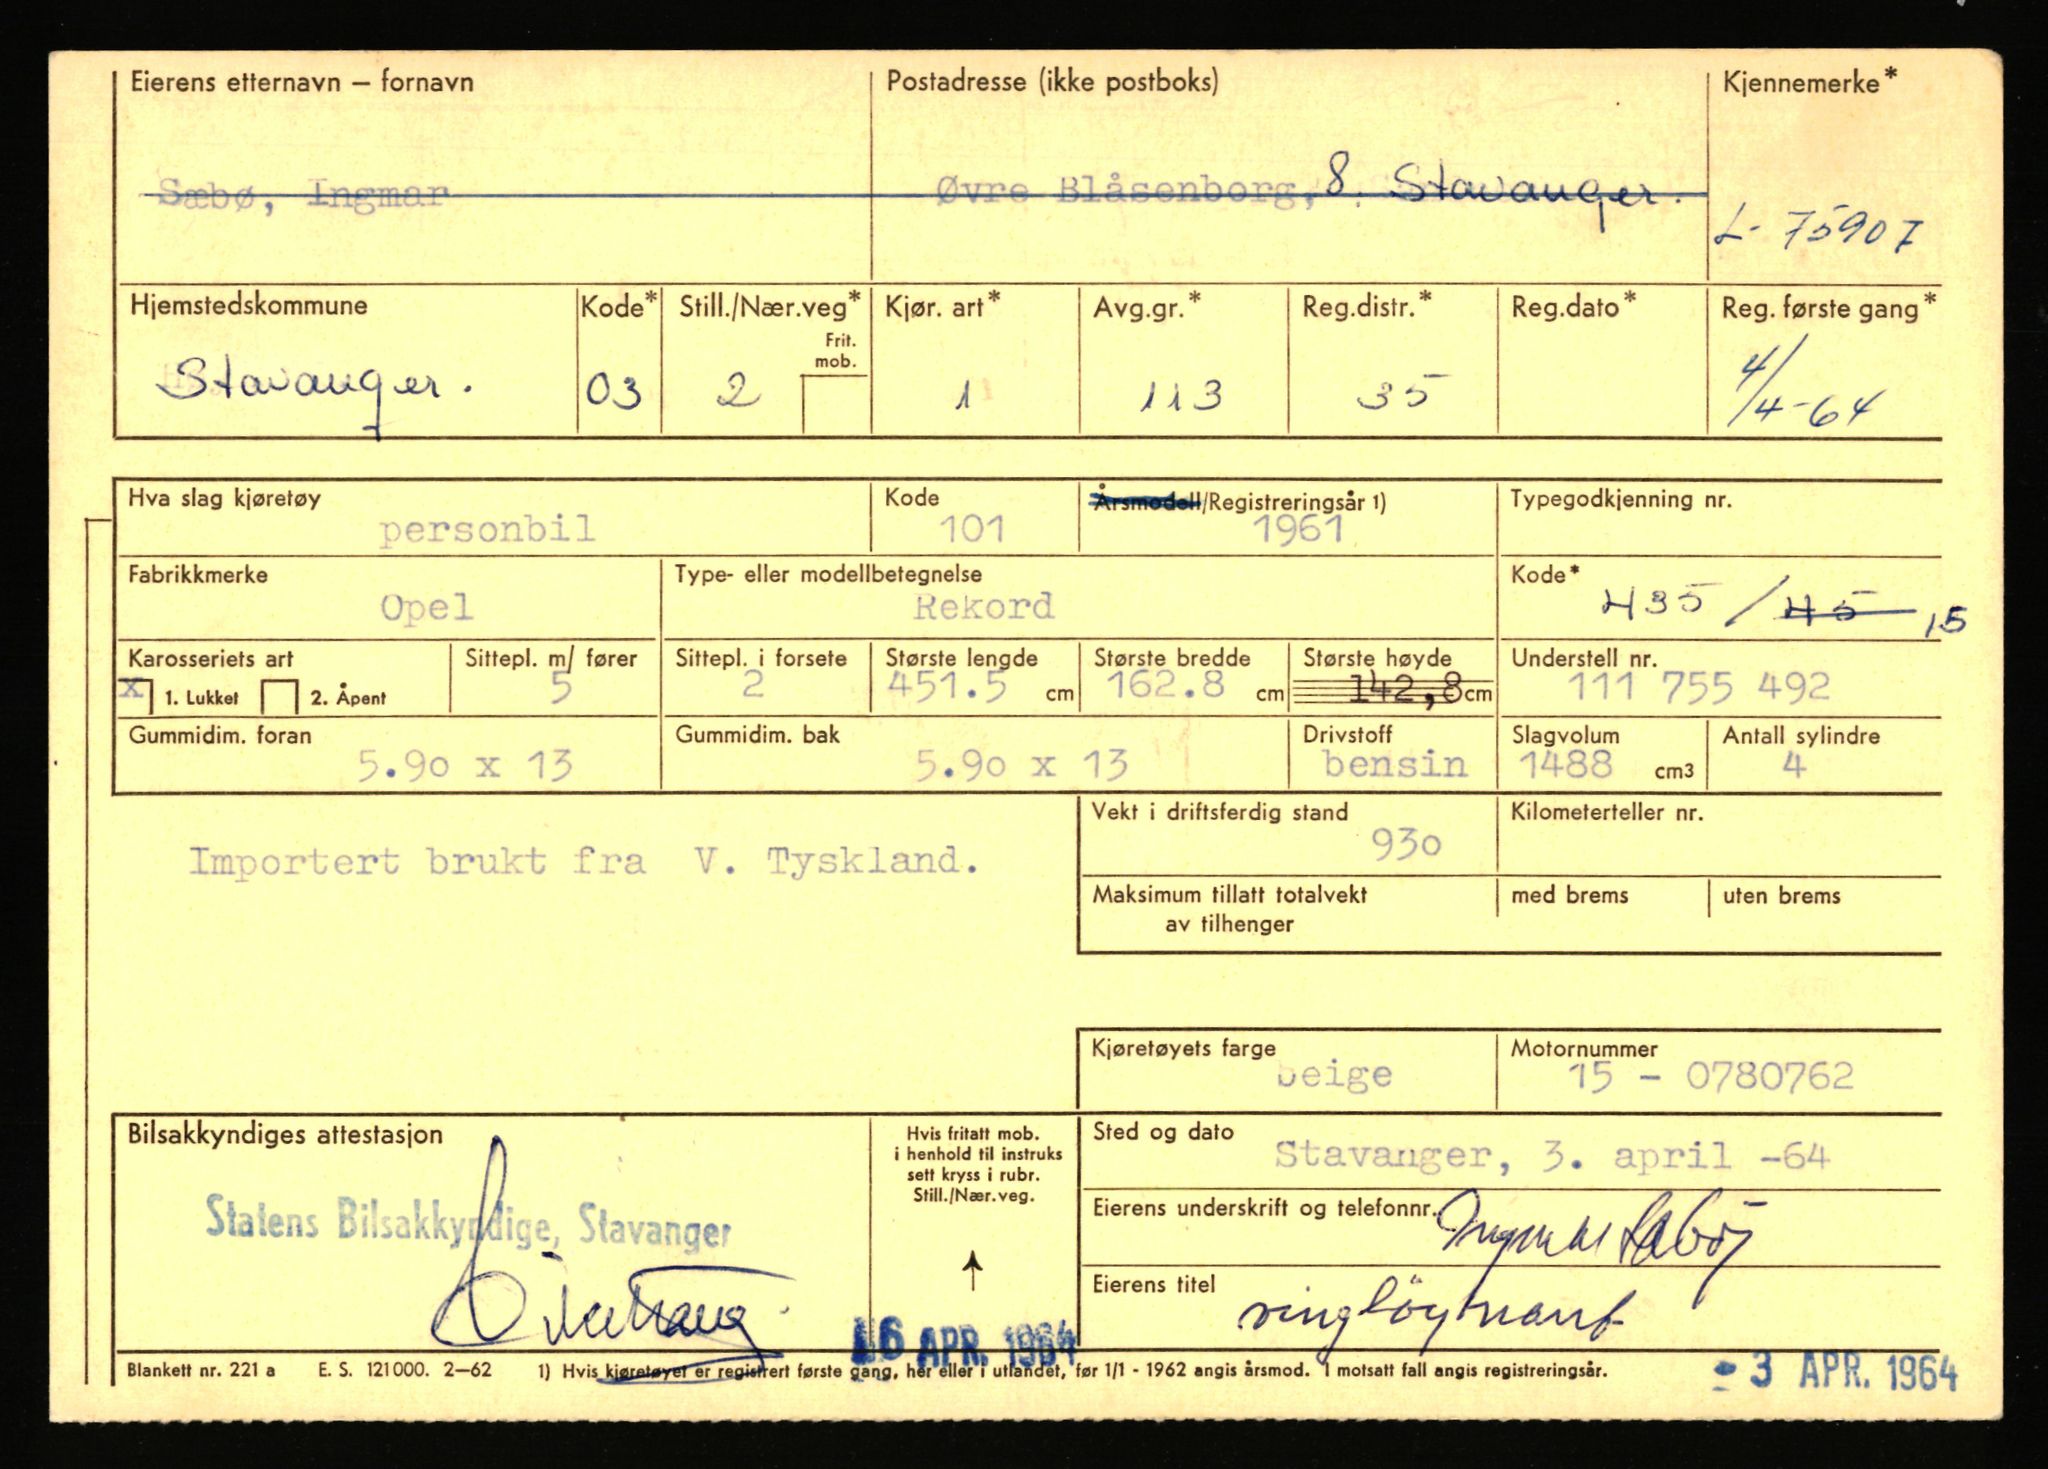 Eierens etternavn – fornavn Postadresse (ikke postboks) Kjennemerke*
Sæbø, Ingmar Øvre Blåsenborg, 8. Stavanger.
L- 75907
Hjemstedskommune Kode* Still./Nær.veg* Kjør. art* Avg.gr.* Reg.distr.* Reg.dato* Reg. første gang*
Frit.
mob.
Stavanger. 03 2 1 113 35 4/4-64
Hva slag kjøretøy Kode Årsmodell/Registreringsår 1) Typegodkjenning nr.
personbil 101 1961
Fabrikkmerke Type- eller modellbetegnelse Kode*
Opel Rekord 435 / 45 15
Karosseriets art Sittepl. m/ fører Sittepl. i forsete Største lengde Største bredde Største høyde Understell nr.
x 1. Lukket 2. Åpent 5 2 451.5 cm 162.8 cm 142,8 cm 111 755 492
Gummidim. foran Gummidim. bak Drivstoff Slagvolum Antall sylindre
5.90 x 13 5.90 x 13 bensin 1488 cm3 4
Vekt i driftsferdig stand Kilometerteller nr.
930
Importert brukt fra V. Tyskland.
Maksimum tillatt totalvekt med brems uten brems
av tilhenger
Kjøretøyets farge Motornummer
beige 15 - 0780762
Bilsakkyndiges attestasjon
Hvis fritatt mob.
i henhold til instruks
sett kryss i rubr.
Still./Nær.veg.
Sted og dato
Stavanger, 3. april -64
Statens Bilsakkyndige, Stavanger
Eierens underskrift og telefonnr.
Ingmar Sæbø
Eierens titel
vingløytnant
16 APR. 1964
Blankett nr. 221 a E. S. 121000. 2–62 1) Hvis kjøretøyet er registrert første gang, her eller i utlandet, før 1/1 - 1962 angis årsmod. I motsatt fall angis registreringsår.
- 3 APR. 1964